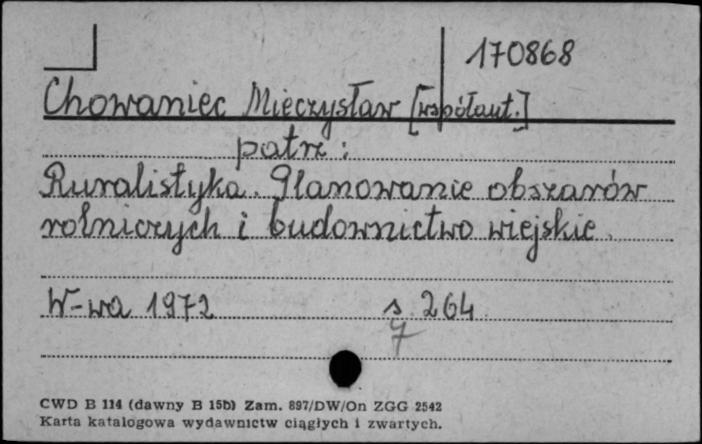 170868
Chowaniec Mieczysław [współaut.]
patrz:
Ruralistyka. Planowanie obszarów
rolniczych i budownictwo wiejskie.
W-wa 1972 s. 264
7
CWD B 114 (dawny B 15b) Zam. 897/DW/On ZGG 2542
Karta katalogowa wydawnictw ciągłych i zwartych.